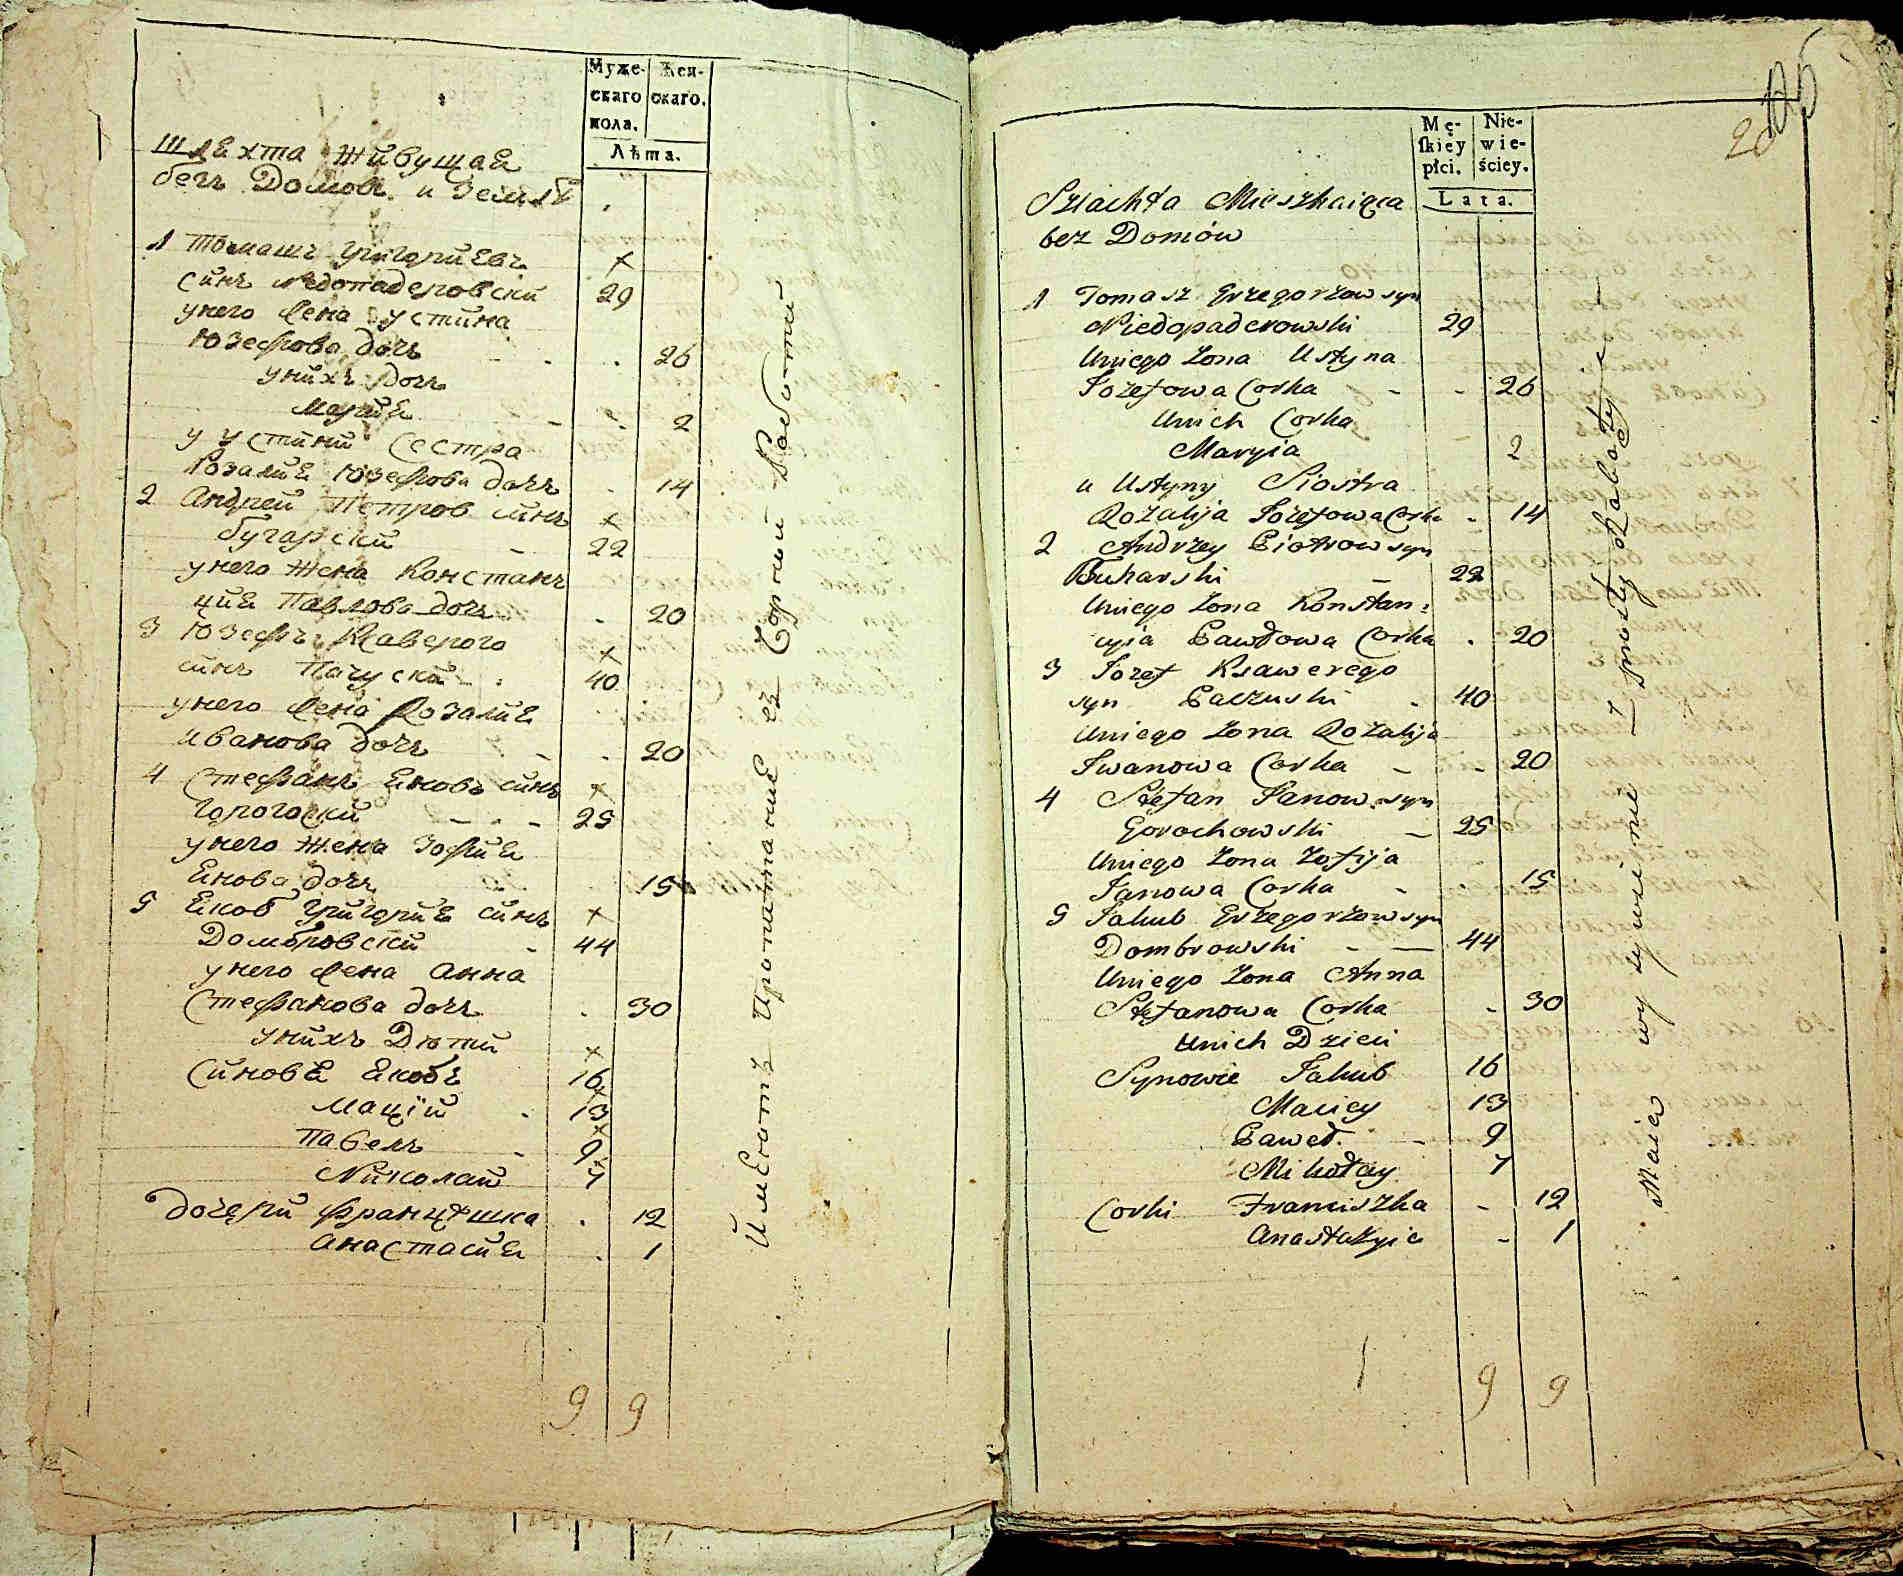 Муже-
скаго
пола.
Жен-
скаго.
Лѣта.
Шляхта Живущая
безъ Домовъ и Земль
1 Томашъ Григориевъ
синъ Недопадеровски 29
унего Жена Устина
Юзефова дочъ 26
унихъ Дочъ
Мария 2
у Устини Сестра
Розалия Юзефова дочъ 14
2 Андрей Петров синъ
бугарски 22
унего жена Констанъ
ция Павлова дочъ 20
3 Юзефъ Ксаверого
синъ Пачуски 40
унего Жена Розалия
иванова дочъ 20
4 Стефанъ Яновъ синъ
Горогоски 25
унего жена Зофия
Янова дочъ 15
5 Якоб Григория синъ
Домбровски 44
унего Жена Анна
Стефанова дочъ 30
унихъ Дѣти
Синовя Якобъ 16
Мацiй 13
Павелъ 9
Николай 7
дочери Францишка 12
Анастасия 1
9 9
Имеютъ Пропитание
105
20
Mę-
skiey
płci.
Nie-
wie-
ściey.
Lata.
Szlachta Mieszkaiąca
bez Domów
1 Tomasz Grzegorzow syn
Niedopaderowski 29
Uniego Zona Ustyna
Jozefowa Corka 26
Unich Corka
Maryia 2
u Ustyny Siostra
Rozalija Jozefowa Corka 14
2 Andrzey Piotrow syn
Buharski 22
Uniego Zona Konstan:
cyia Pawłowa Corka 20
3 Jozef Ksawerego
syn Paczuski 40
Uniego Zona Rozalija
Iwanowa Corka 20
4 Stefan Janow syn
Gorochowski 25
Uniego Zona Zofija
Janowa Corka 15
5 Jakub Grzegorzow syn
Dombrowski 44
Uniego Zona Anna
Stefanowa Corka 30
Unich Dzieci
Synowie Jakub 16
Maciey 13
Paweł 9
Mikołay 7
Corki Franciszka 12
Anastazyia 1
9 9
Maią wyżywienie z prosty Roboty